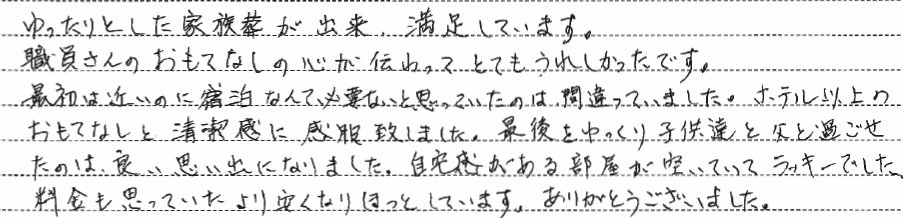 ゆったりとした家族葬が出来、満足しています。
職員さんのおもてなしの心が伝わってとてもうれしかったです。
最初は近いのに宿泊なんて必要ないと思っていたのは、間違っていました。ホテル以上の
おもてなしと清潔感に感服致しました。最後をゆっくり子供達と父と過ごせ
たのは、良い思い出になりました。自宅感がある部屋が空いていてラッキーでした、
料金も思っていたより安くなりほっとしています。ありがとうございました。